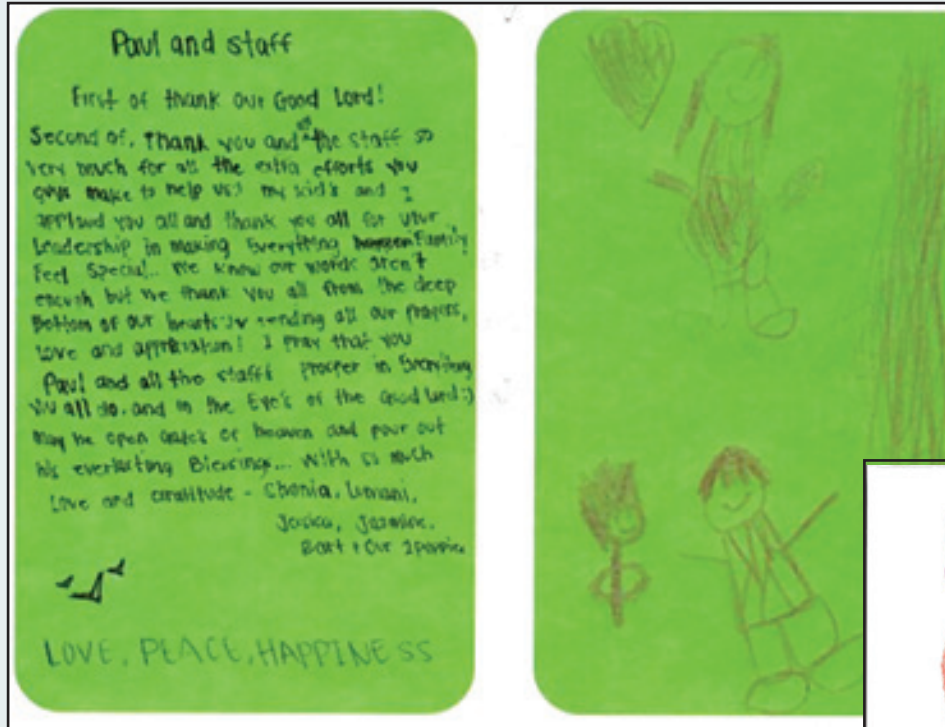 Paul and staff
First of thank our Good Lord!
Second of, Thank you and all the staff so
very much for all the extra efforts you
guys make to help us! my kid's and I
applaud you all and thank you all for your
Leadership in making Everything Family
Feel Special... We know our words aren't
enough but we thank you all from the deep
Bottom of our hearts sending all our prayers,
Love and appreciation! I pray that you
Paul and all the staff prosper in Everything
you all do. and in the Eye's of the Good Lord :)
may he open Gate's of heaven and pour out
his everlasting Blessings... With so much
Love and Gratitude -
Jessica, Jasmine,
LOVE, PEACE, HAPPINESS